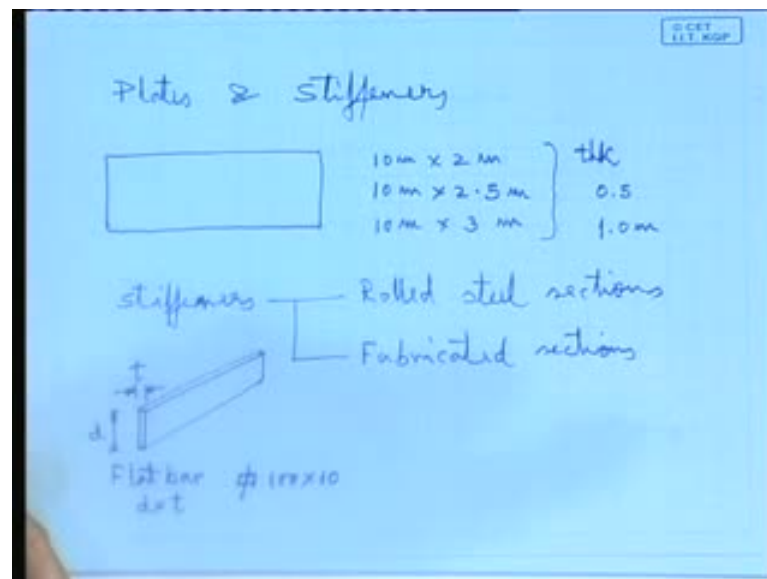 © CET
I.I.T. KGP
Plates & Stiffeners
10 m x 2 m
10 m x 2.5 m
10 m x 3 m
thk
0.5
1.0 m
stiffeners
Rolled steel sections
Fabricated sections
t
d
Flat bar 100x10
d x t